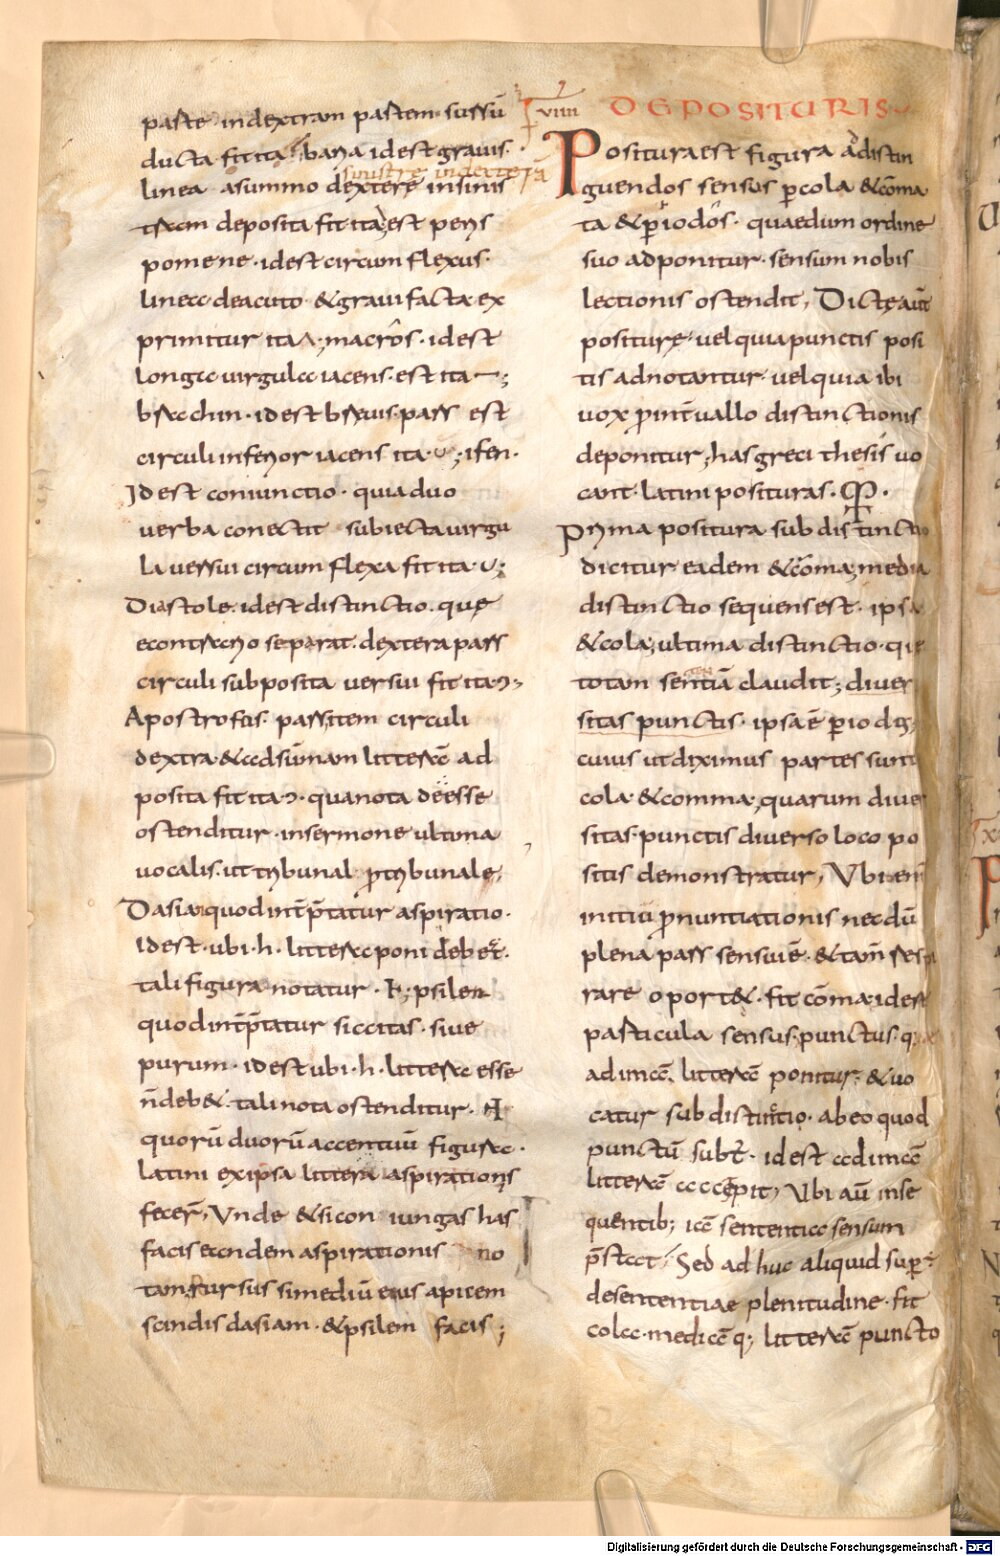 parte indextram partem sussū
ducta fit ita / baria idest grauis.
sinistre in dexterā
linea asummo dextere insinis
tram deposita fit ita est peris
pomene. idest circum flexus.
linea deacuto & graui facta ex
primitur ita ʌ; macros. idest
longa uirgula iacens. est ita —;
brachin. idest breuis. pars est
circuli inferior iacens ita. ᴗ; ifen.
Idest coniunctio. quia duo
uerba conectit subiecta uirgu
la uersui circum flexa fit ita. ᴗ;
Diastole. idest distinctio. quę
econtrario separat. dextera pars
circuli subposita uersui fit ita ɔ,
Apostrofus. pars item circuli
dextra. & adsūmam litterā ad
posita fit ita ɔ. qua nota deesse
ostenditur. insermone ultima
uocalis. ut tribunal ptribunale,
Dasia. quod intp̄tatur aspiratio.
Idest. ubi. h. littera poni debet.
tali figura notatur. Ⱶ; psilen
quod intp̄tatur siccitas. siue
purum. idest ubi. h. littera esse
n̄ deb&. tali nota ostenditur. ⫞
quorū duorū accentuū figura.
latini ex ipsa littera aspirationis
fecer̄, Vnde & si con iungas has
facis eandem aspirationis no
tam, rursus si mediū eius apicem
scindis dasiam. & psilem facis;
VIIII DE POSITURIS
Positura est figura ad distin
guendos sensus p cola & cōma
ta & piodos. quae dum ordine
suo adponitur. sensum nobis
lectionis ostendit, Dictę aūt
positurę. uel quia punctis posi
tis adnotantur. uel quia ibi
uox p int̄uallo distinctionis
deponitur, has greci thesis uo
cant. latini posituras.
Prima positura subdistinctio
dicitur eadem & cōma; media
distinctio sequens est. ipsa
& cola; ultima distinctio. que
totam sentītiā claudit; diuer
sitas punctis. ipsa ē piodus;
cuius ut diximus partes sunt
cola & comma; quarum diuer
sitas. punctis diuerso loco po
sitis demonstratur, Vbi enī
initiū pnuntiationis necdū
plena pars sensui ē. & tam̄ respi
rare oport&. fit cōma. idest
particula sensus. punctus. q;
ad imā. litterā ponitur. & uo
catur subdistinctio. ab eo quod
punctū subt̄. idest ad imā
litterā accepit, Vbi aū inse
quentib; iā sententia sensum
p̄stat, Sed ad huc aliquid sup̄.
de sententiae plenitudine. fit
cola. mediā q; litterā puncto
Digitalisierung gefördert durch die Deutsche Forschungsgemeinschaft - DFG